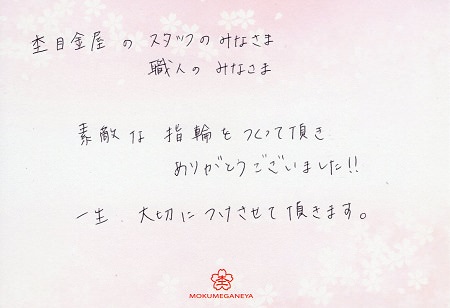 杢目金屋 の スタッフの みなさま
職人の みなさま
素敵な 指輪を つくって頂き
ありがとうございました!!
一生、大切に つけさせて頂きます。
杢
MOKUMEGANEYA